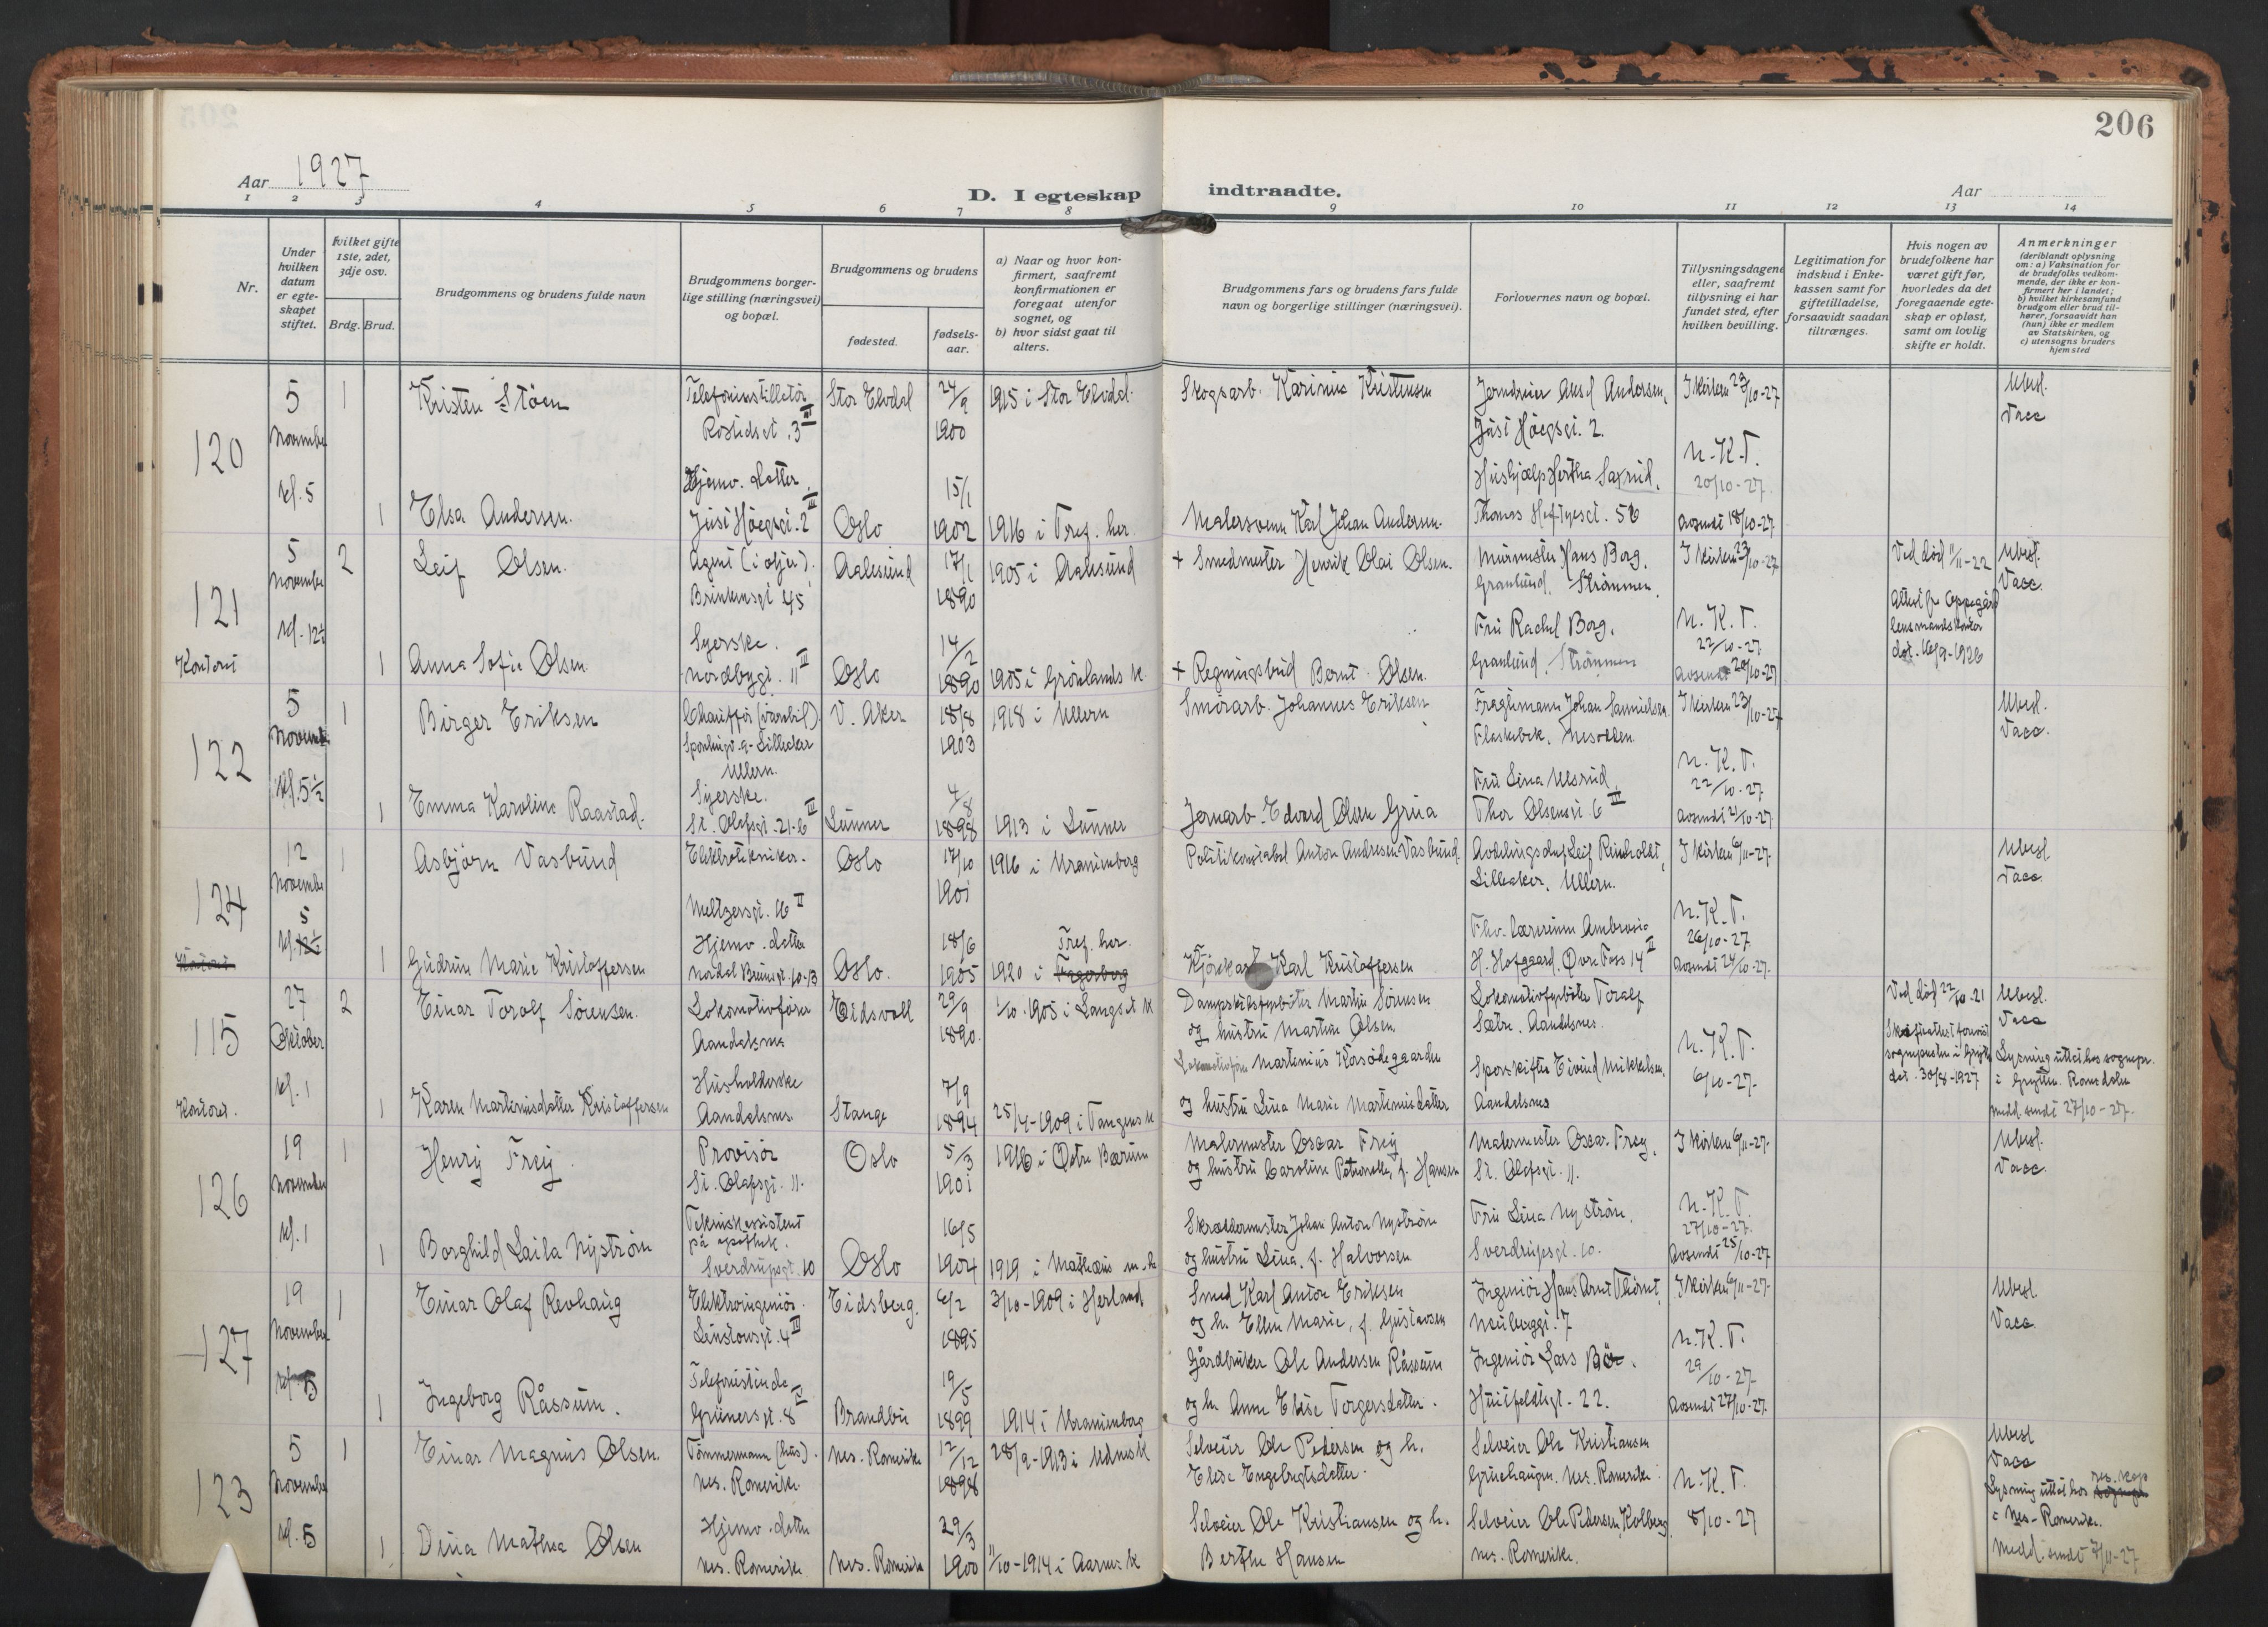 206
Aar 1927
D. I egteskap indtraadte.
Aar
1 2 3 4 5 6 7 8 9 10 11 12 13 14
Nr.
Under hvilken datum er egteskapet stiftet.
Hvilket gifte 1ste, 2det, 3dje osv.
Brdg. Brud.
Brudgommens og brudens fulde navn
Brudgommens borgerlige stilling (næringsvei) og bopæl.
Brudgommens og brudens
fødested.
fødselsaar.
a) Naar og hvor konfirmert, saafremt konfirmationen er foregaat utenfor sognet, og
b) hvor sidst gaat til alters.
Brudgommens fars og brudens fars fulde navn og borgerlige stillinger (næringsvei).
Forlovernes navn og bopæl.
Tillysningsdagene eller, saafremt tillysning ei har fundet sted, efter hvilken bevilling.
Legitimation for indskud i Enkekassen samt for giftetilladelse, forsaavidt saadan tiltrænges.
Hvis nogen av brudefolkene har været gift før, hvorledes da det foregaaende egteskap er opløst, samt om lovlig skifte er holdt.
Anmerkninger (deriblandt oplysning om: a) Vaksination for de brudefolks vedkommende, der ikke er konfirmert her i landet; b) hvilket kirkesamfund brudgom eller brud tilhører, forsaavidt han (hun) ikke er medlem av Statskirken, og c) utensogns bruders hjemsted
120
5 November kl. 5
1 Kristen Støen
Telefoninstallatør
Stor Elvdal 24/9 1900
1915 i Stor Elvdal
Skogsarb. Karinius Kristensen
Jerndreier Aksel Andersen,
I kirken 23/10-27
Ubesl.
Vacc
N.K.T.
20/10-27
1 Elsa Andersen.
Hjemv. datter
Oslo 15/1 1902
1916 i Tref. her
Malersvenn Karl Johan Andersen.
Thomas Heftyesgt. 56
Avsendt 18/10-27
121 Kontoret
5 November kl. 12½
2 Leif Olsen.
Agent (i oljer).
Aalesund 17/1 1890
1905 i Aalesund
+ Smedmester Henrik Olai Olsen.
Murmester Hans Borg.
Granlund, Strømmen.
I kirken 23/10-27
Ved død 11/11-22
Ubesl.
Vacc.
lensmandskontor
dat. 16/9-1926
Fru Rachel Borg.
Granlund, Strømmen
N.K.T.
22/10-27
Avsendt 20/10-27
1 Anna Sofie Olsen.
Syerske.
Nordbygt. 11 III
Oslo 14/2 1890
1905 i Grønlands k.
+ Regningsbud Bernt Olsen.
122
5 November kl. 5½
1 Birger Eriksen
Chauffør (varebil)
Ullern.
V. Aker 18/8 1903
1918 i Ullern
Smørarb. Johannes Eriksen
Flaskebek, Nesodden.
I kirken 23/10-27
Ubesl.
Vacc.
Fru Lina Ulsrud
Thor Olsensgt. 6 III
N.K.T.
22/10-27
Avsendt 21/10-27
1 Emma Karoline Raastad.
Syerske.
St. Olafsgt. 21.b III
Lunner 4/8 1898
1913 i Lunner
Jernarb. Edvard Olsen Grua
124
12 November kl. 5
1 Asbjørn Vasbund
Elektrotekniker.
Meltzersgt. 16 II
Oslo 17/10 1901
1916 i Uranienborg
Politikonstabel Anton Andresen Vasbund.
Avdelingschef Leif Reinholdt,
Lilleaker, Ullern.
I kirken 6/11-27.
Ubesl.
Vacc.
N.K.T.
26/10-27
Avsendt 24/10-27.
1 Gudrun Marie Kristoffersen
Hjemv. datter
Nordal Brunsgt. 10.B
Oslo. 18/6 1905
1920 i Fagerborg Tref. her.
Kjørekar Karl Kristoffersen
H. Hofgaard, Øvre Foss 14 II
115 Kontoret.
27 Oktober kl. 1
2 Einar Torolf Sørensen.
Lokomotivfører
Aandalsnes
Eidsvoll 29/9 1890.
1/10-1905 i Langset k
Dampskibsfyrbøter Martin Sørensen
og hustru Martine Olsen.
Lokomotivfyrbøter Toralf
Sætre, Aandalsnes.
N.K.T.
6/10-27.
Ved død 22/10-21
dat. 30/8-1927
Ubesl.
Vacc
Lysning uttat hos sognepr.
i Grytten, Romsdalen
medd. sendt 27/10-27.
1 Karen Martinusdatter Kristoffersen
Husholderske
Aandalsnes.
Stange 7/9 1894
25/4-1909 i Tangens k
Lokomotivfører Martinius Korsødegaarden
og hustru Lina Marie Martinusdatter
Sporskifter Eivind Mikkelsen,
Aandalsnes
126
19 November kl. 1
1 Henry Frey.
Provisor
St. Olafsgt. 11.
Oslo 5/3 1901
1916 i Østre Bærum
Malermester Oscar Frey
og hustru Caroline Petronelle, f. Hansen
Malermester Oscar Frey,
St. Olafsgt. 11.
I kirken 6/11-27.
Ubesl.
Vacc.
1 Borghild Laila Nystrøm
Teknisk assistent
på apothek.
Sverdrupsgt. 10
Oslo 16/5 1904
1919 i Mathæus m.h
Skræddermester Johan Anton Nystrøm
og hustru Lina, f. Halvorsen
Fru Lina Nystrøm.
Sverdrupsgt. 10.
N.K.T.
27/10-27.
Avsendt 25/10-27
127
19 November kl. 5
1 Einar Olaf Revhaug
Elektroingeniør.
Linstowsgt. 4 III
Eidsberg. 6/2 1895
3/10-1909 i Herland
Smed Karl Anton Eriksen
og h. Ellen Marie, f. Gustavsen
Ingeniør Hans Arnt Thorut,
Neuberggt. 17
I kirken 6/11-27.
Ubesl.
Vacc.
1 Ingeborg Råssum.
Telefonistinde
Grünersgt. 8 IV
Brandbu 19/5 1899
1914 i Uranienborg
Gårdbruker Ole Andersen Råssum
og h. Anne Elise Torgersdatter.
Ingeniør Lars Bø.
Huitfeldtsgt. 22.
N.K.T.
29/10-27
Avsendt 27/10-27.
123
5 November kl. 5
1 Einar Magnus Olsen.
Tømmermann (hus).
Nes. Romerike.
Nes. Romerike 12/12 1898
28/9-1913 i Udnes k
Selveier Ole Pedersen og h.
Elise Engebretsdatter.
Selveier Ole Kristiansen
Gruehaugen, Nes. Romerike.
N.K.T.
8/10-27
Ubesl
Vacc
Lysning uttat hos res. kap
i Nes - Romerike.
Medd. sendt 7/11-27
1 Dina Mathea Olsen
Hjemv. datter
Nes. Romerike
Nes. Romerike 29/3 1900
11/10-1914 i Aarnes k
Selveier Ole Kristiansen og h.
Berthe Hansen
Selveier Ole Pedersen, Kolberg
Nes. Romerike.